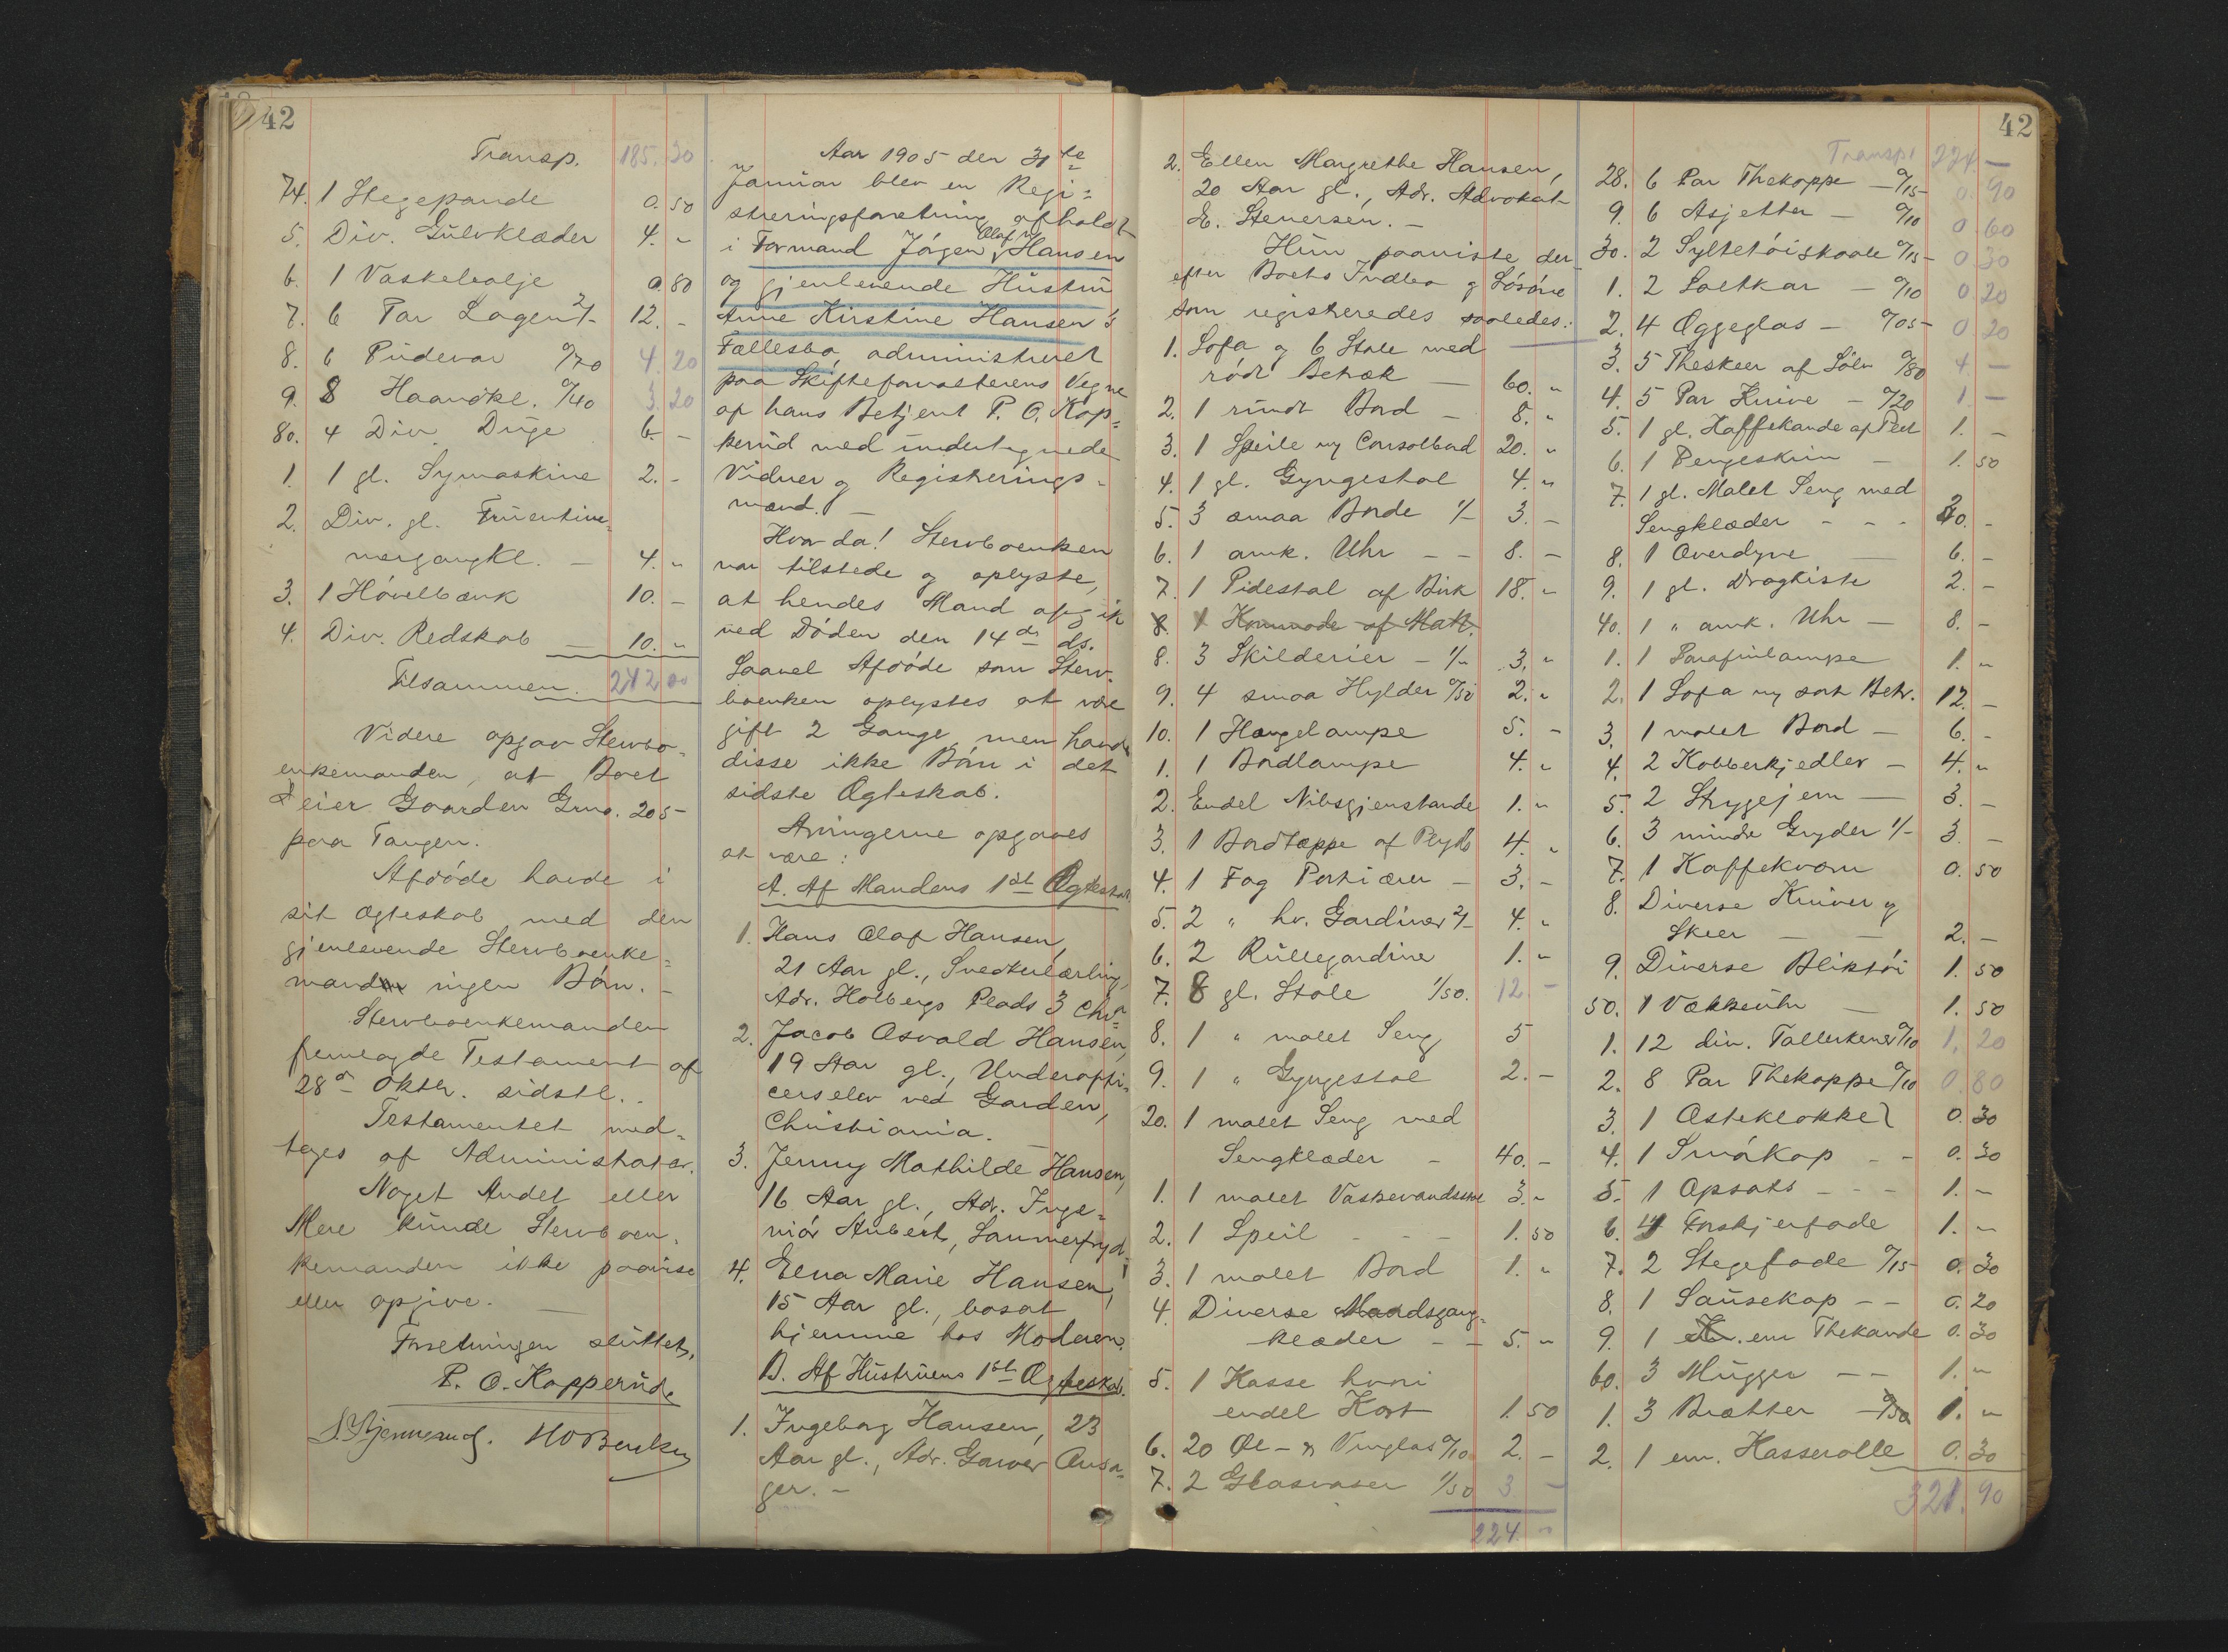 42
Transp. 185.20
74. 1 Stegepande 0.50
5. Div. Gulvklæder 4. "
6. 1 Vaskebalje 0.80
7. 6 Par Lagen 2/- 12. -
8. 6 Pudevar 0/70 4.20
9. 8 Haandkl. 0/40 3.20
80. 4 Div. Duge 6. -
1. 1 gl. Symaskine 2. -
2. Div. gl. Fruentim-
mergangkl. — 4. "
3. 1 Høvelbænk 10. -
4. Div. Redskab — 10. "
Tilsammen. 242 00
Videre opgav Stervbo-
enkemanden, at Boet
eier Gaarden Grno. 205
paa Tangen.
Afdøde havde i
sit Ægteskab med den
gjenlevende Stervboenke-
mand ingen Børn. -
Stervboenkemanden
fremlagde Testament af
28de Oktbr. sidstl..
Testamentet med-
toges af Administrator.
Noget Andet eller
Mere kunde Stervboen-
kemanden ikke paavise
eller opgive. —
Forretningen sluttet.
P. O. Kopperud
Aar 1905 den 31te
Januar blev en Regi-
streringsforretning afholdt
i Formand Jørgen Olaf Hansen
og gjenlevende Hustru
Anne Kirstine Hansen's
Fællesbo, administreret
paa Skifteforvalterens Vegne
af hans Betjent P. O. Kop-
perud med undertegnede
Vidner og Registrerings-
mænd. —
Hvor da! Stervboenken
var tilstede og oplyste,
at hendes Mand afgik
ved Døden den 14de ds.
Saavel Afdøde som Sterv-
boenken oplystes at være
gift 2 Gange, men havde
disse ikke Børn i det
sidste Ægteskab.
Arvingerne opgaves
at være:
A. Af Mandens 1ste Ægteskab.
1. Hans Olaf Hansen,
21 Aar gl., Snedkerlærling,
Adr. Holbergs Plads 3 Chra
2. Jacob Osvald Hansen,
19 Aar gl., Underoffi-
cerselev ved Garden,
Christiania. —
3. Jenny Mathilde Hansen,
16 Aar gl., Adr. Inge-
niør Aubert, Sommerfryd.
4. Elna Marie Hansen,
15 Aar gl., bosat
hjemme hos Moderen.
B. Af Hustruens 1ste Ægteskab.
1. Ingeborg Hansen, 23
Aar gl., Adr. Garver Ansa-
ger. -
2. Ellen Margrethe Hansen,
20 Aar gl., Adr. Advokat
E. Stenersen. -
Hun paaviste der-
efter Boets Indbo og Løsøre
som registreredes saaledes:
1. Sofa og 6 Stole med
rødt Betræk — 60. "
2. 1 rundt Bord — 8. "
3. 1 Speile og Consolbord 20. "
4. 1 gl. Gyngestol 4. "
5. 3 smaa Borde 1/- 3. -
6. 1 amk. Uhr - - 8. -
7. 1 Pidestal af Birk 18. "
8. 1 Kommode af Mah.
8. 3 Skilderier - 1/- 3. "
9. 4 smaa Hylder 0/50 2. "
10. 1 Hængelampe 5. -
1. 1 Bordlampe 4. "
2. Endel Nibsgjenstande 1. "
3. 1 Bordtæppe af Plyds 4. "
4. 1 Fag Portiærer — 3. -
5. 2 " hv. Gardiner 2/- 4. "
6. 2 Rullegardiner 1. "
7. 8 gl. Stole 1/50. 12. -
8. 1 " malet Seng 5
9. 1 " Gyngestol 2. -
20. 1 malet Seng med
Sengklæder - 40. -
1. 1 malet Vaskevandsstol 3. "
2. 1 Speil - - - 1. 50
3. 1 malet Bord 1. "
4. Diverse Mandsgang-
klæder - - 5. "
5. 1 Kasse hvori
endel Kort 1. 50
6. 20 Øl- og Vinglas 0/10 2. -
7. 2 Glasvaser 1/50 3. -
224. "
42
Transp. 224. —
28. 6 Par Thekoppe — 0/15 0. 90
9. 6 Asjetter — 0/10 0 60
30. 2 Syltetøiskaale 0/15 0 30
1. 2 Saltkar — 0/10 0 20
2. 4 Æggeglas - 0/05 0 20
3. 5 Theskeer af Sølv 0/80 4 —
4. 5 Par Knive - 0/20 1 —
5. 1 gl. Kaffekande af Plet 1. -
6. 1 Pengeskrin — 1. 50
7. 1 gl. Malet Seng med
Sengklæder - - - 20. -
8. 1 Overdyne — 6. -
9. 1 gl. Dragkiste 2. -
40. 1 " amk. Uhr — 8. -
1. 1 Parafinlampe 1. "
2. 1 Sofa og sort Betr. 12. -
3. 1 malet Bord — 6. -
4. 2 Kobberkjedler — 4. "
5. 2 Strygejern — 3. -
6. 3 mindre Gryder 1/- 3. -
7. 1 Kaffekværn 0. 50
8. Diverse Kniver og
Skeer — — 2. -
9. Diverse Bliktøi 1. 50
50. 1 Vækkeuhr — 1. 50
1. 12 div. Tallerkener 0/10 1. 20
2. 8 Par Thekoppe 0/10 0. 80
3. 1 Osteklokke 0. 30
4. 1 Smørkop - - 0. 30
5. 1 Opsats - - - 1. -
6. 4 Forskjerfade 1. "
7. 2 Stegefade 0/15 0. 30
8. 1 Sausekop - - 0. 20
9. 1 em Thekande 0. 30
60. 3 Mugger - - 1. "
1. 3 Brætter 1. "
2. 1 em. Kasserolle 0. 30
321. 90